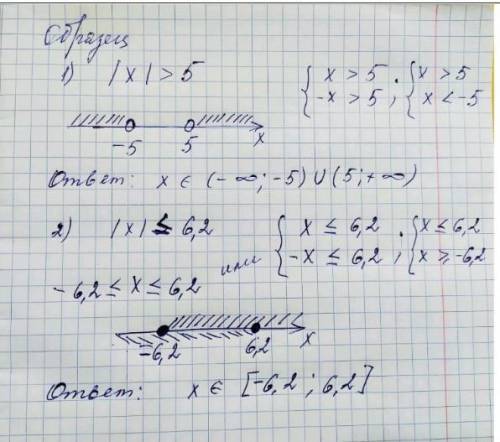 Образец
1) |x| > 5 { x > 5 ; { x > 5
-x > 5 x < -5
-5 5 x
Ответ: x ∈ (-∞; -5) ∪ (5; +∞)
2) |x| ≤ 6,2 { x ≤ 6,2 ; { x ≤ 6,2
или -x ≤ 6,2 x ≥ -6,2
-6,2 ≤ x ≤ 6,2
-6,2 6,2 x
Ответ: x ∈ [-6,2 ; 6,2]